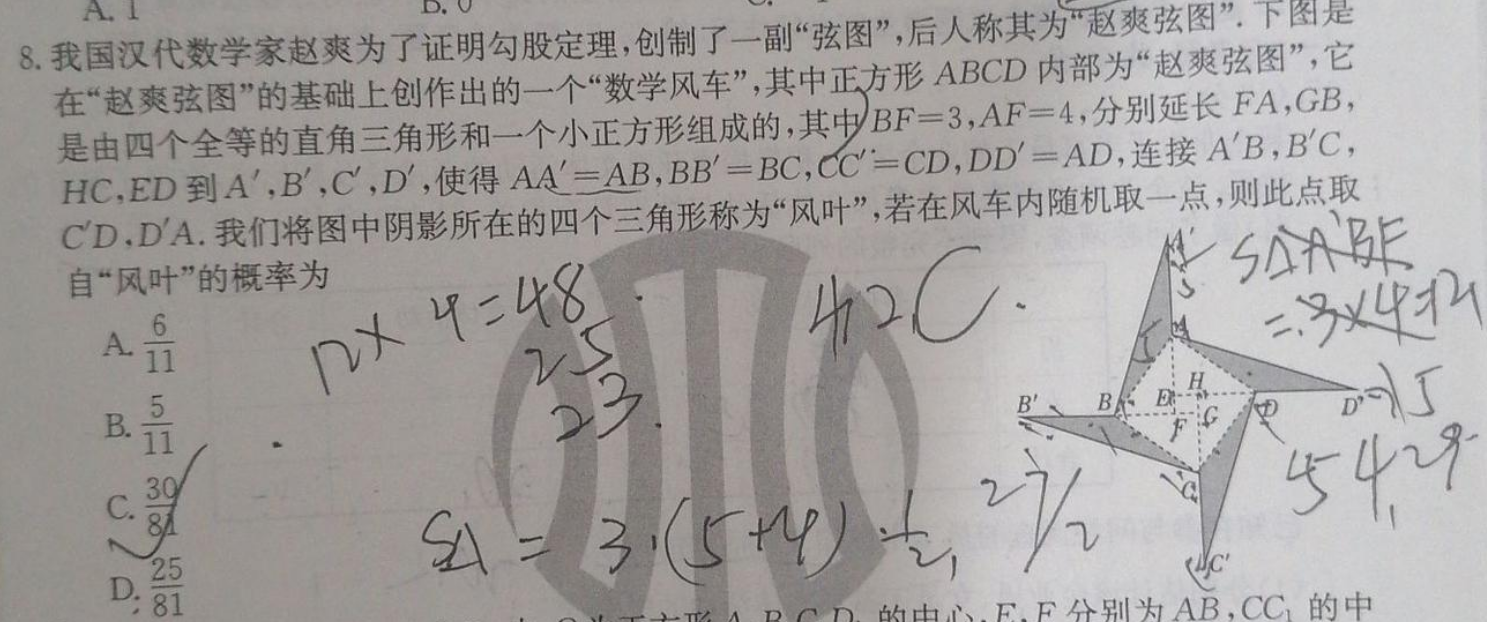 A. 1 B. 0 C.
8. 我国汉代数学家赵爽为了证明勾股定理,创制了一副“弦图”,后人称其为“赵爽弦图”. 下图是
在“赵爽弦图”的基础上创作出的一个“数学风车”,其中正方形 ABCD 内部为“赵爽弦图”,它
是由四个全等的直角三角形和一个小正方形组成的,其中 BF=3,AF=4,分别延长 FA,GB,
HC,ED 到 A′,B′,C′,D′,使得 AA′=AB,BB′=BC,CC′=CD,DD′=AD,连接 A′B,B′C,
C′D,D′A. 我们将图中阴影所在的四个三角形称为“风叶”,若在风车内随机取一点,则此点取
自“风叶”的概率为
A. 6/11
B. 5/11
C. 30/81
D. 25/81
12×4=48
25
23.
42
C.
S△A′BF
=3×4=12
A′
5
A
5
B′ B E H D D′
F G
C
C′
5
54
29
S△ = 3·(5+4)·1/2, 27/2
的中心,E,F 分别为 AB,CC₁ 的中